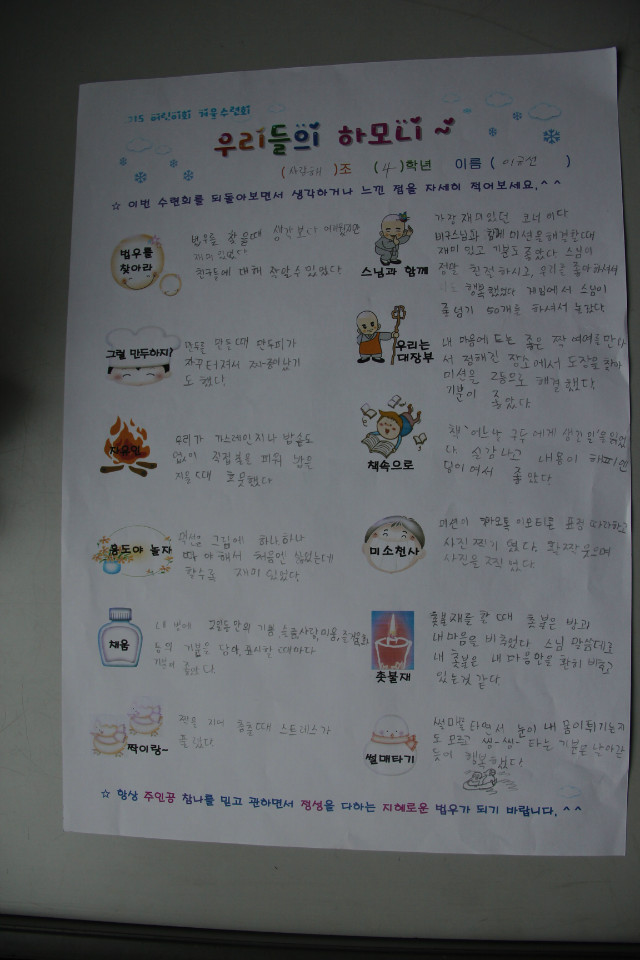 715 어린이회 겨울수련회
우리들의 하모니~
(사랑해)조 (4)학년 이름 (이금선)
☆ 이번 수련회를 되돌아보면서 생각하거나 느낀 점을 자세히 적어보세요.^^
법우를
찾아라
법우를 찾을때 생각보다
재미있었다
친구들에 대해 잘알수 있었다
스님과 함께
가장 재미있던 코너이다
비구스님과 함께 미션을해결할때
재미 있고 기분도 좋았다 스님이
정말 친절하시고, 우리를 좋아하셔서
행복했었다 게임에서 스님이
줄넘기 50개를 하셔서 놀랐다
그럴 만두하지?
만두를 만들때 만두피가
자꾸터져서 짜증이났기
도 했다.
우리는
대장부
내 마음에 드는 좋은 짝 예예를만나
서 정해진 장소에서 도장을찾아
미션을 2등으로 해결했다.
기분이 좋았다.
자유인
우리가 가스레인지나 밥솥도
없이 직접불을 피워 밥을
지을때 흐뭇했다
책속으로
책 '어느날 구두에게 생긴일'을읽었
다. 실감나고 내용이 해피엔
딩이어서 좋았다.
홍도야 놀자
그림에 하나하나
따야해서 처음만 싫었는데
할수록 재미있었다.
미소천사
미션이 카카오톡 이모티콘 표정 따라하고
사진찍기 였다. 활짝웃으며
사진을 찍었다.
채움
내 병에 2월동안의 기쁨,슬픔,사랑,미움,즐거움,화
등의 기분을 담아 표시할때마다
기분이
촛불재
촛불재를 할때 촛불은 밝과
내마음을 비추었다. 스님 말씀대로
내 촛불은 내 마음만을 환히 비추고
있는것 같다.
짝이랑~
짝을 지어 춤출때 스트레스가
풀렸다.
썰매타기
썰매를 타면서 눈이 내 몸이튀기는지
도 모르고 씽-씽- 타는 기분은 날아갈
듯이 행복했다!
☆ 항상 주인공 참나를 믿고 관하면서 정성을 다하는 지혜로운 법우가 되기 바랍니다.^^